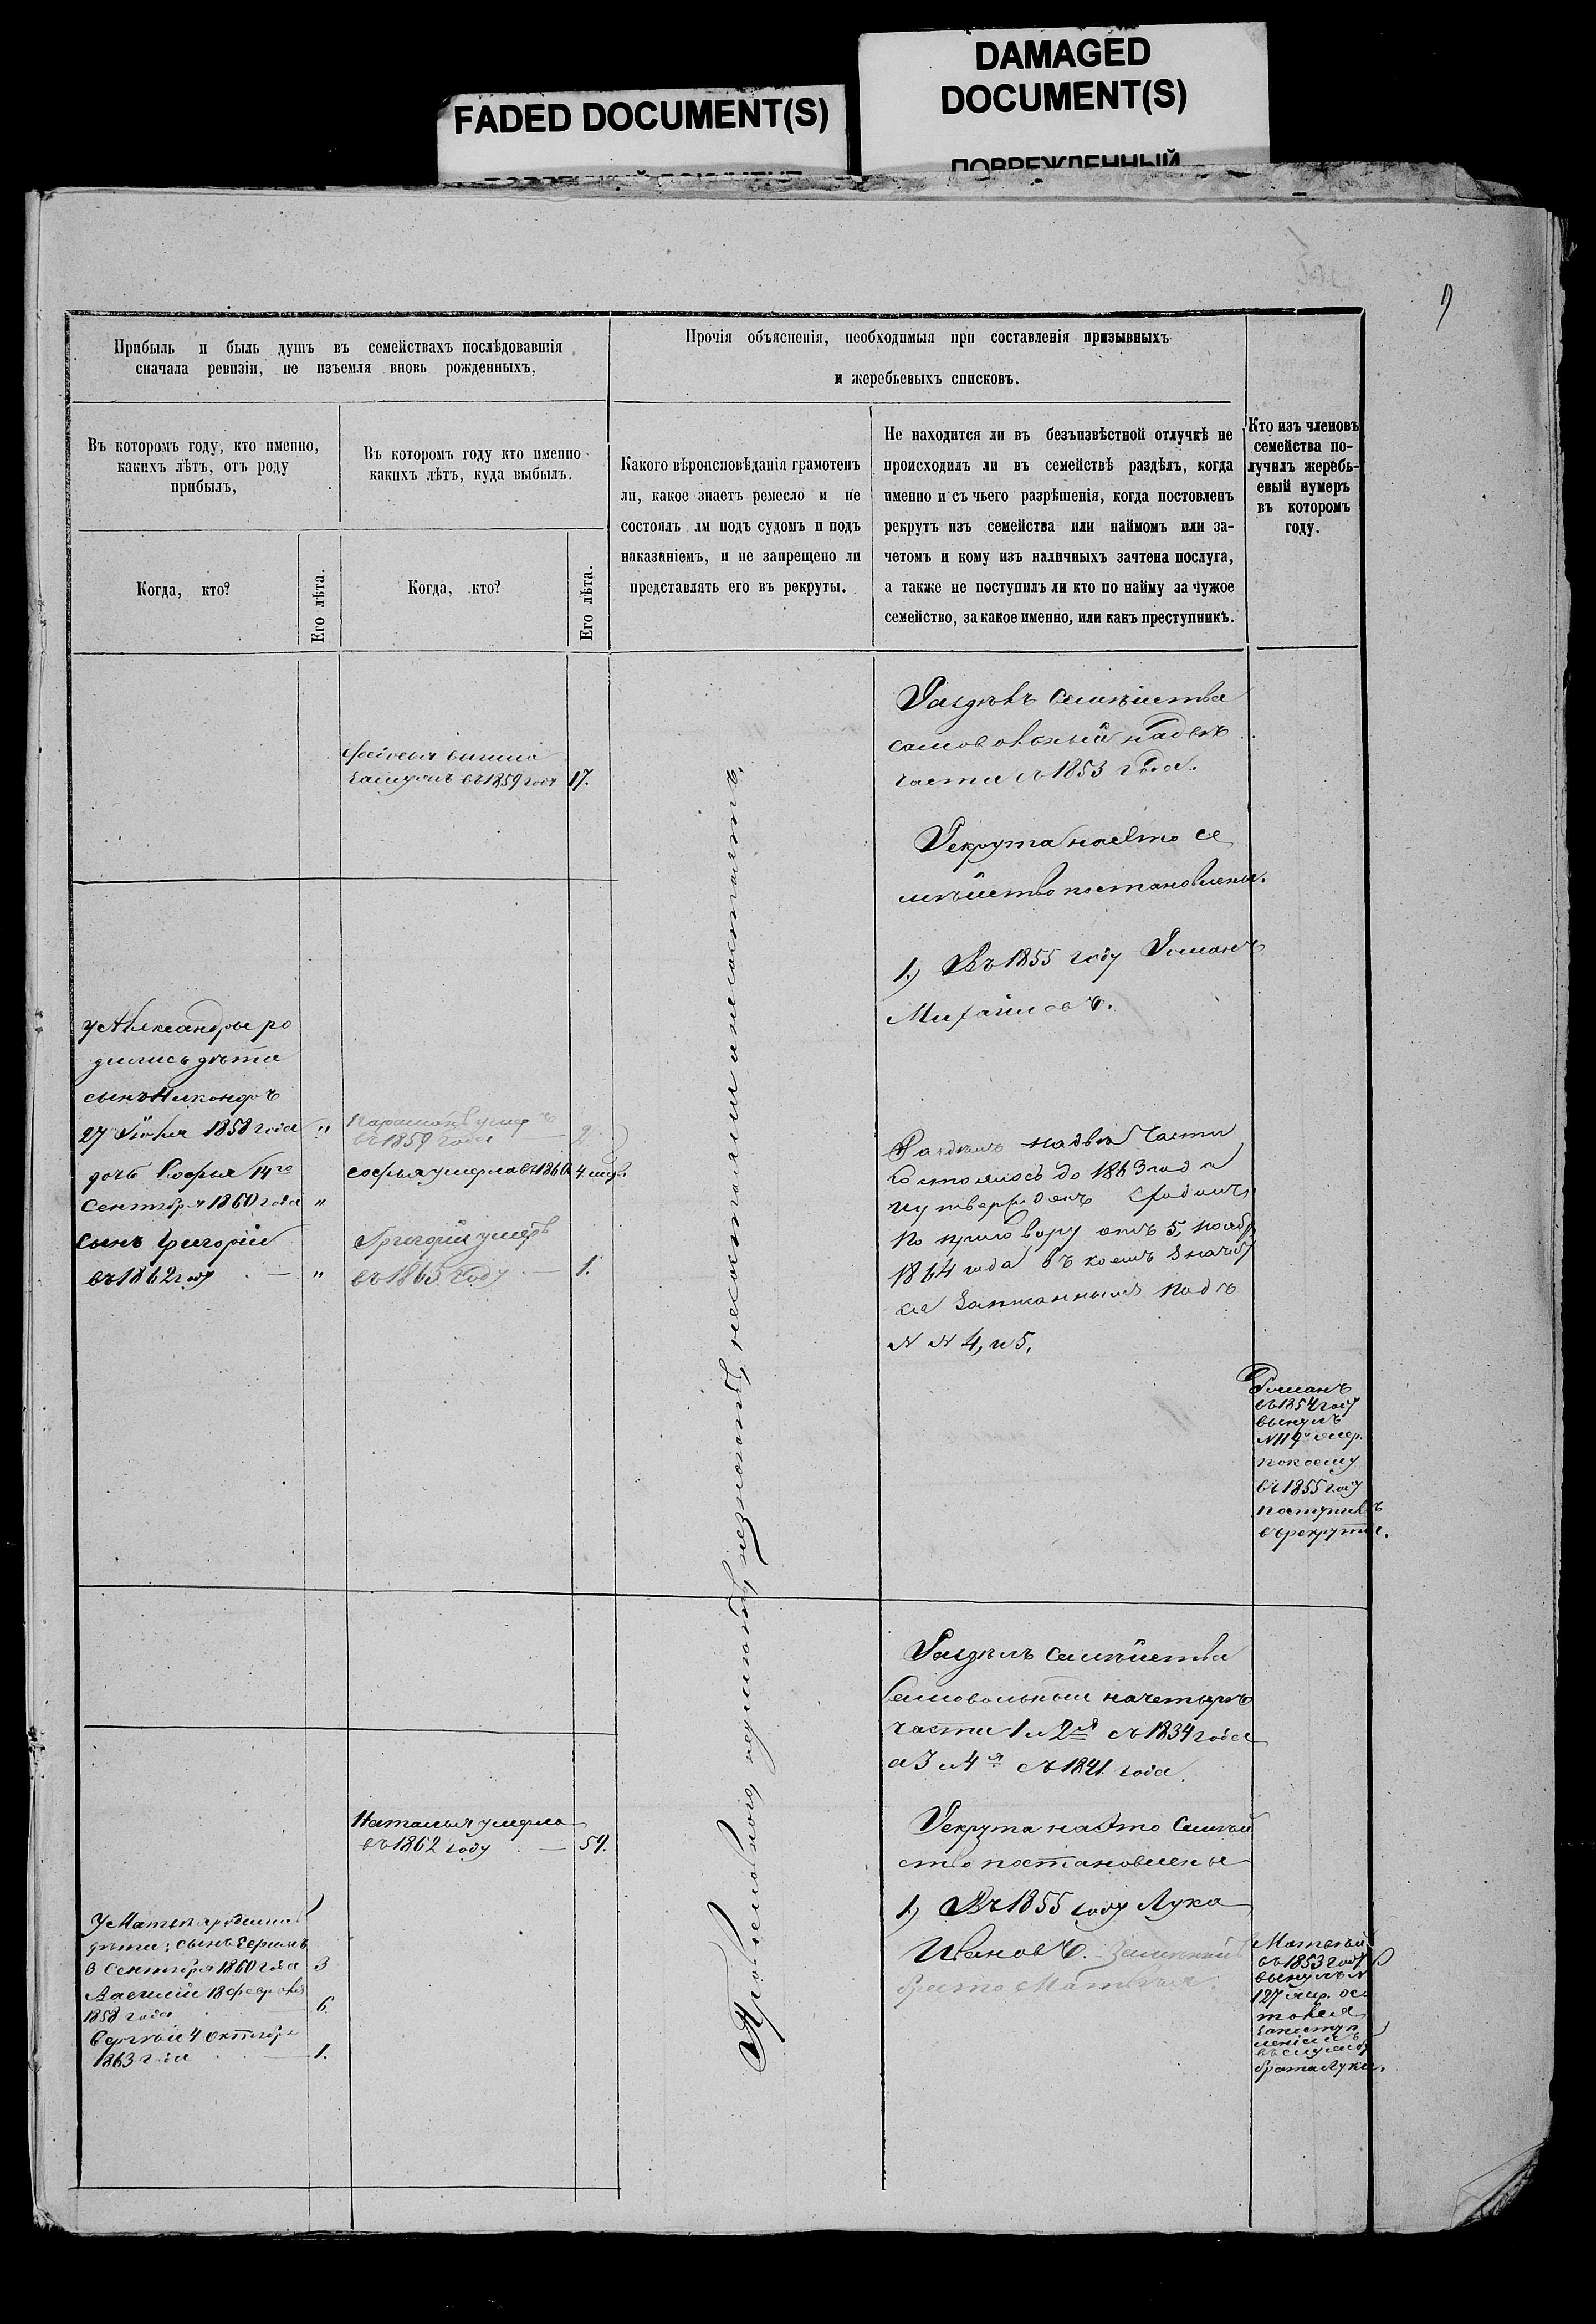 DAMAGED
DOCUMENT(S)
FADED DOCUMENT(S)
ПОВРЕЖДЕННЫЙ
Прибыль и быль душъ въ семействахъ послѣдовавшія
сначала ревизіи, не изъемля вновь рожденныхъ.
Прочія объясненія, необходимыя при составленія призывныхъ
и жеребьевыхъ списковъ.
Въ которомъ году, кто именно,
какихъ лѣтъ, отъ роду
прибылъ,
Въ которомъ году кто именно
какихъ лѣтъ, куда выбылъ.
Какого вѣроисповѣданія грамотенъ
ли, какое знаетъ ремесло и не
состоялъ лм подъ судомъ и подъ
наказаніемъ, и не запрещено ли
представлять его въ рекруты.
Не находится ли въ безъизвѣстной отлучкѣ не
происходилъ ли въ семействѣ раздѣлъ, когда
именно и съ чьего разрѣшенія, когда постовленъ
рекрутъ изъ семейства или наймомъ или за-
четомъ и кому изъ наличныхъ зачтена послуга,
а также не поступилъ ли кто по найму за чужое
семейство, за какое именно, или какъ преступникъ.
Кто изъ членовъ
семейства по-
лучилъ жеребь-
евый нумеръ
въ которомъ
году.
Когда, кто?
Его лѣта.
Когда, кто?
Его лѣта.
вышла
замужъ въ 1859 году 17.
Раздѣлъ семѣйства
самовольный на двѣ
части съ 1853 года.
Рекрута на это се
мѣйство постановлены.
1.) Въ 1855 году Романъ
Михайловъ.
У Александры ро
дились дѣти
сынъ Никондръ
27 Іюля 1858 года "
дочь Софья 14го
Сентября 1860 года "
Сынъ Григорій
въ 1862 году — "
Парамонъ умеръ
въ 1859 году — 2
Софья умерла въ 1860 4 нед.
Григорій умеръ
въ 1863 году — 1.
Раздѣлъ на двѣ части
состоялось до 1863 года
и утвержденъ
по приговору отъ 5, ноябр
1864 года въ коемъ значут
ся записанными подъ
N N 4, и 5.
Романъ
въ 1854 году
вынулъ
N 114й жер.
по коему
въ 1855 году
поступилъ
въ рекруты.
Православного, неумиютъ, незнаютъ, несостояли и несостоятъ.
Раздѣлъ семѣйства
самовольный на четыре
части 1 и 2я съ 1834 года
а 3 и 4я съ 1841 года.
Рекрута на это семѣй
ство постановлены
1.) Въ 1855 году Лука
Ивановъ.
брата Матвѣя.
Наталья умерла
въ 1862 году — 59.
У Матвѣя родились
дѣти: сынъ
3 Сентября 1860 года 3
Василій 18 февраля
1858 года 6.
Сергѣй 4 октября
1863 года — 1.
Матвѣй
въ 1853 году
вынулъ N
127 жер. ос
тался
за поступ
леніемъ
въ службу
брата Луки.